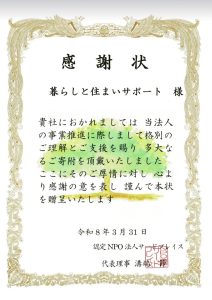 感謝状
暮らしと住まいサポート 様
貴社におかれましては 当法人
の事業推進に際しまして格別の
ご理解とご支援を賜り 多大な
るご寄附を頂戴いたしました
ここにそのご厚情に対し 心よ
り感謝の意を表し 謹んで本状
を贈呈いたします
令和8年3月31日
認定NPO法人サードプレイス
代表理事